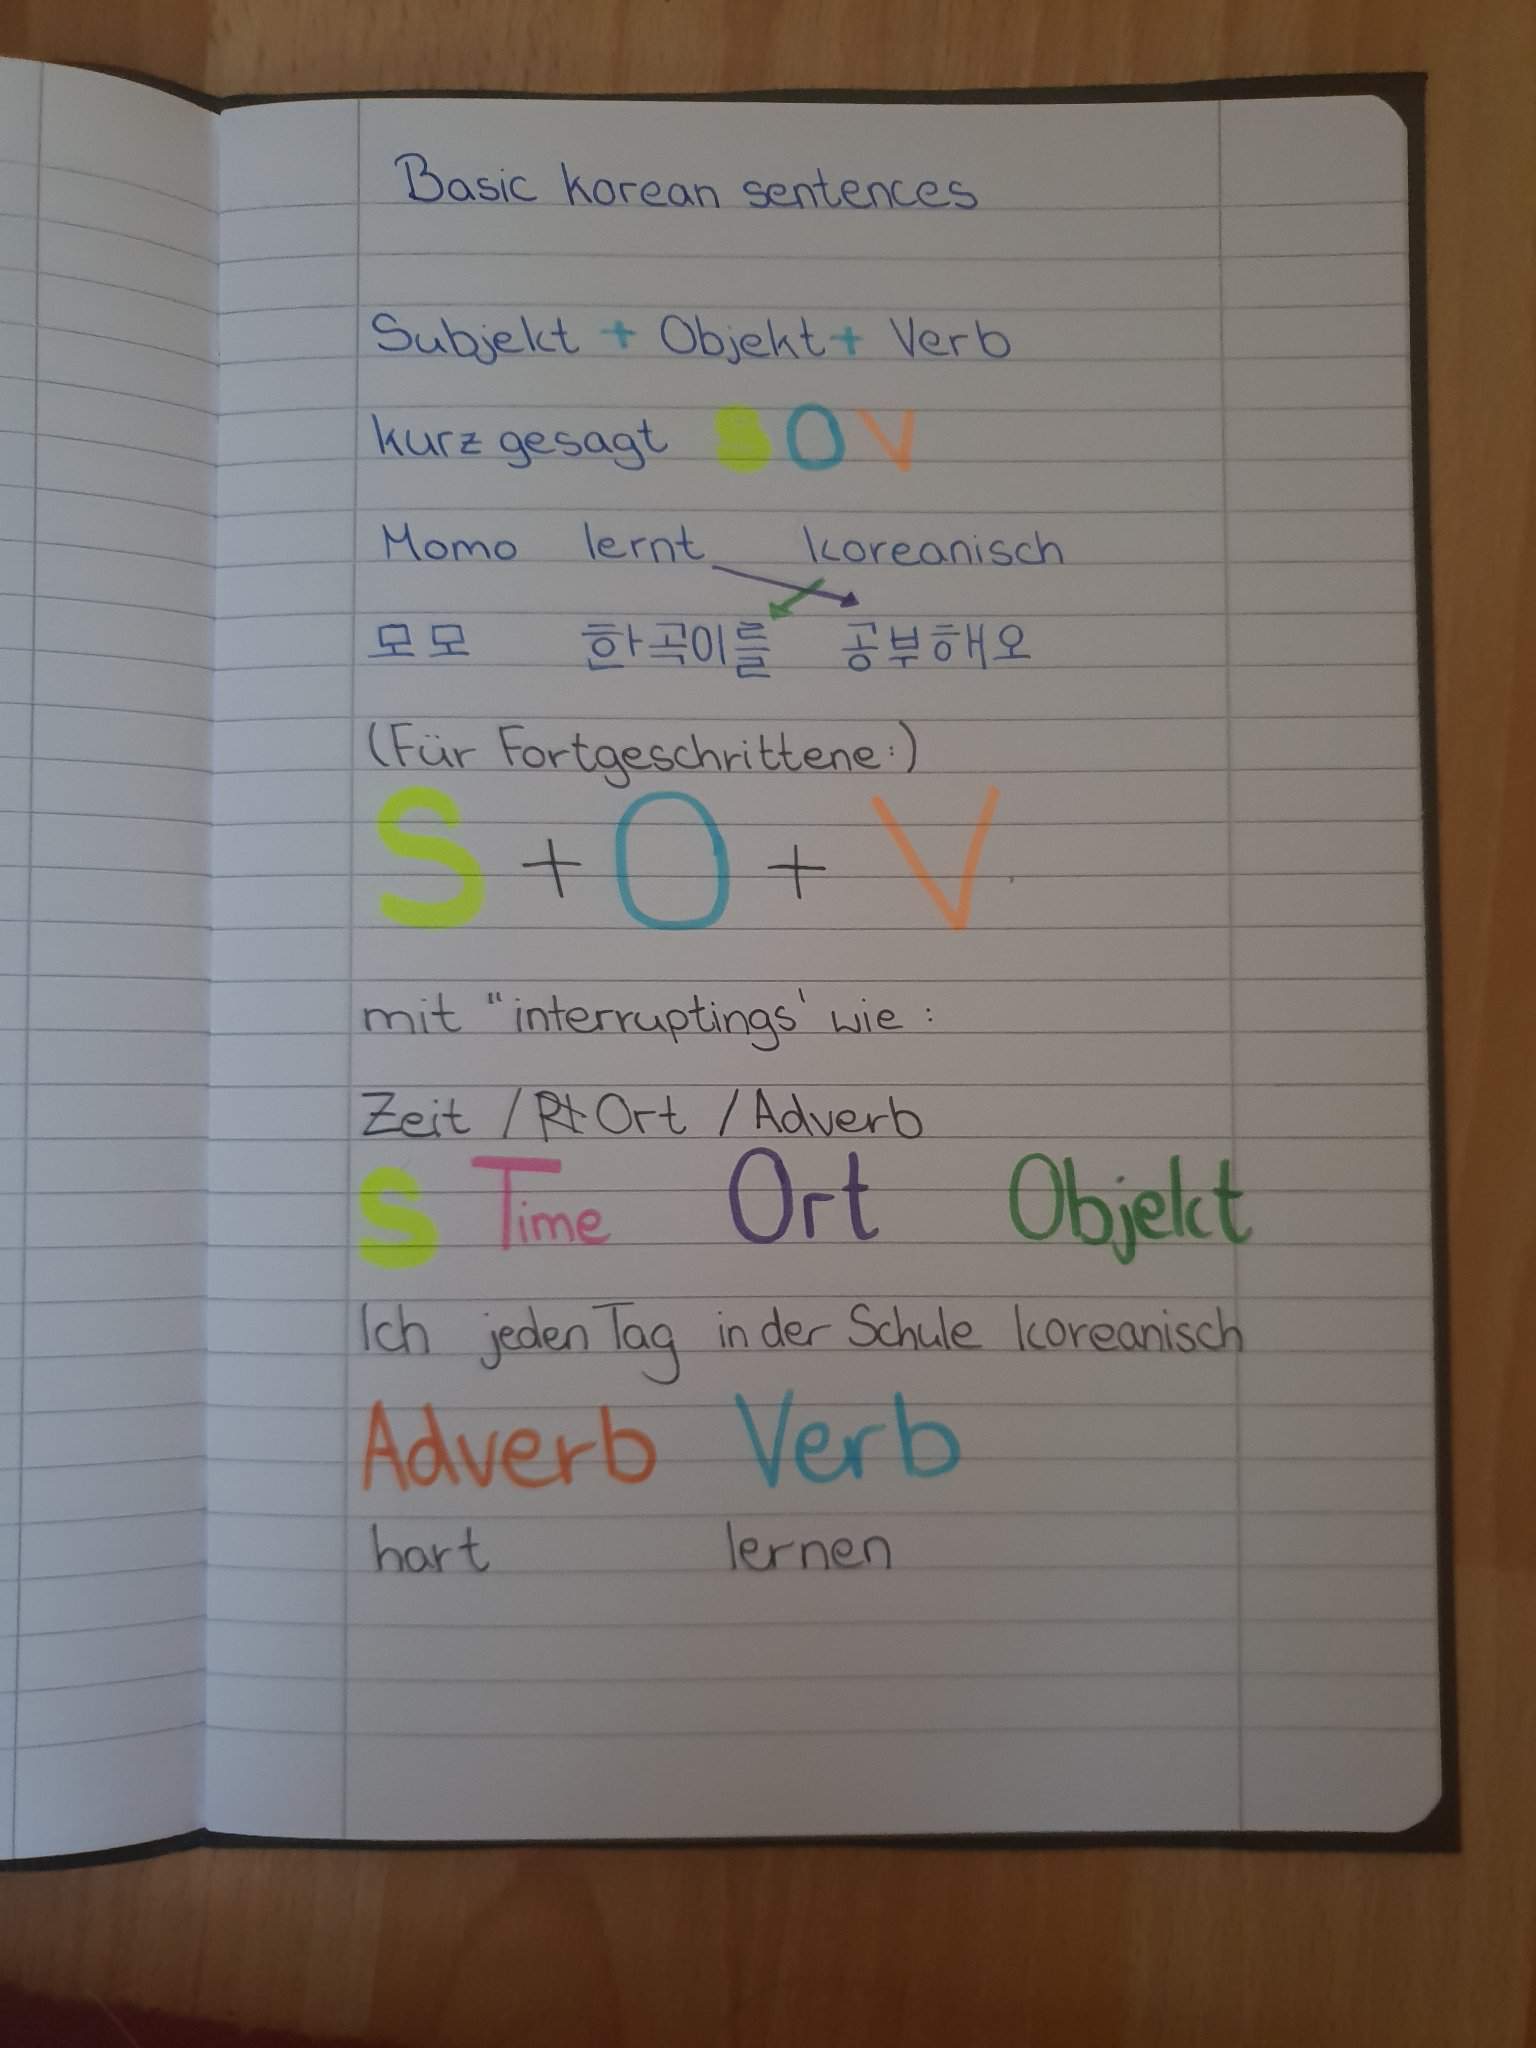 Basic korean sentences
Subjekt + Objekt + Verb
kurz gesagt S O V
Momo lernt koreanisch
모모 한곡이를 공부해오
(Für Fortgeschrittene:)
S + O + V
mit "interruptings' wie:
Zeit / Ort / Adverb
S Time Ort Objekt
Ich jeden Tag in der Schule koreanisch
Adverb Verb
hart lernen